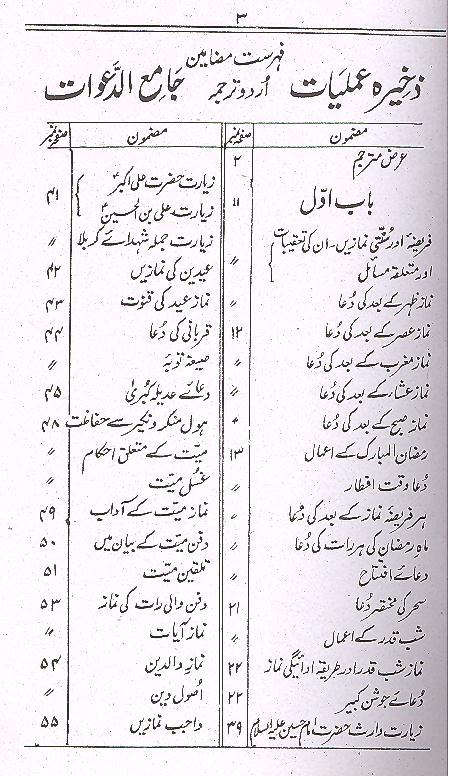 ۳
فہرست مضامین
ذخیرہ عملیات اُردو ترجمہ جامع الدَّعوات
مضمون صفحہ نمبر
عرض مترجم ۲
باب اوّل ۱۱
فریضہ اور سُنّتی نمازیں۔ ان کی تعقیبات
اور متعلقہ مسائل 〃
نماز ظہر کے بعد کی دُعا
نماز عصر کے بعد کی دُعا ۱۲
نماز مغرب کے بعد کی دُعا
نماز عشاء کے بعد کی دُعا 〃
نماز صبح کے بعد کی دُعا 〃
رمضان المبارک کے اعمال ۱۳
دُعا وقت افطار 〃
ہر فریضہ نماز کے بعد کی دُعا 〃
ماہِ رمضان کی ہر رات کی دُعا 〃
دعائے افتتاح 〃
سحر کی مختصر دُعا ۲۱
شب قدر کے اعمال 〃
نماز شب قدر اور طریقہ ادائیگی نماز ۲۲
دُعائے جوشن کبیر ۲۲
زیارت وارث حضرت امام حسین علیہ السلام ۳۹
مضمون صفحہ نمبر
زیارت حضرت علی اکبرؑ
زیارت علی بن الحسینؑ ۴۱
زیارت جملہ شہدائے کربلا 〃
عیدین کی نمازیں ۴۲
نماز عید کی قنوت ۴۳
قربانی کی دُعا ۴۴
صیغہ توبہ 〃
دعائے عدیلہ کُبریٰ ۴۵
ہول منکر و نکیر سے حفاظت ۴۸
میّت کے متعلق احکام 〃
غسل میّت 〃
نماز میّت کے آداب ۴۹
دفن میّت کے بیان میں ۵۰
تلقین میّت ۵۱
دفن والی رات کی نماز ۵۳
نماز آیات 〃
نماز والدین ۵۴
اُصول دین 〃
واجب نمازیں ۵۵